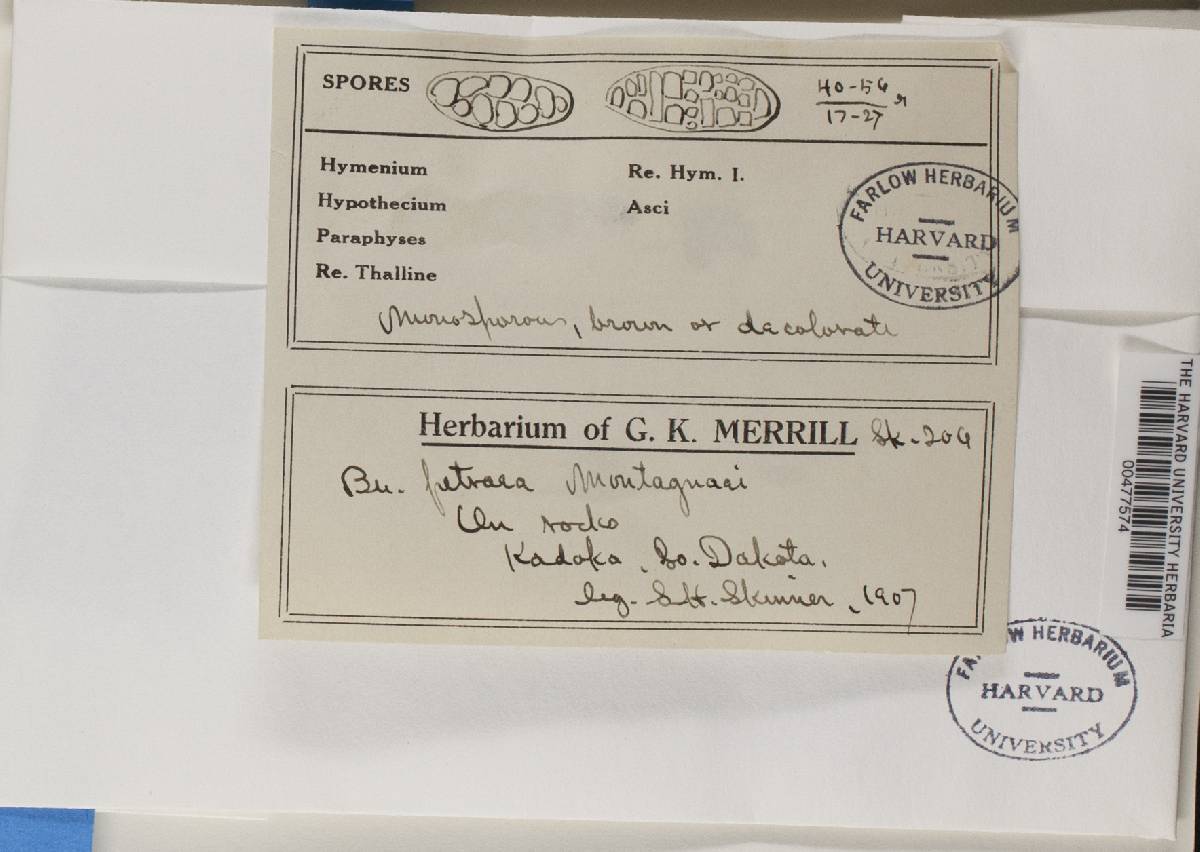 SPORES 40-56 μ
17-27
Hymenium Re. Hym. I.
Hypothecium Asci
Paraphyses
Re. Thalline
Monosporous, brown or decolorate
FARLOW HERBARIUM
HARVARD
UNIVERSITY
Herbarium of G. K. MERRILL Sk. 206
Bu. petraea Montagnaei
On rocks
Kadoka, So. Dakota.
leg. S.H. Skinner, 1907
THE HARVARD UNIVERSITY HERBARIA
00477574
FARLOW HERBARIUM
HARVARD
UNIVERSITY